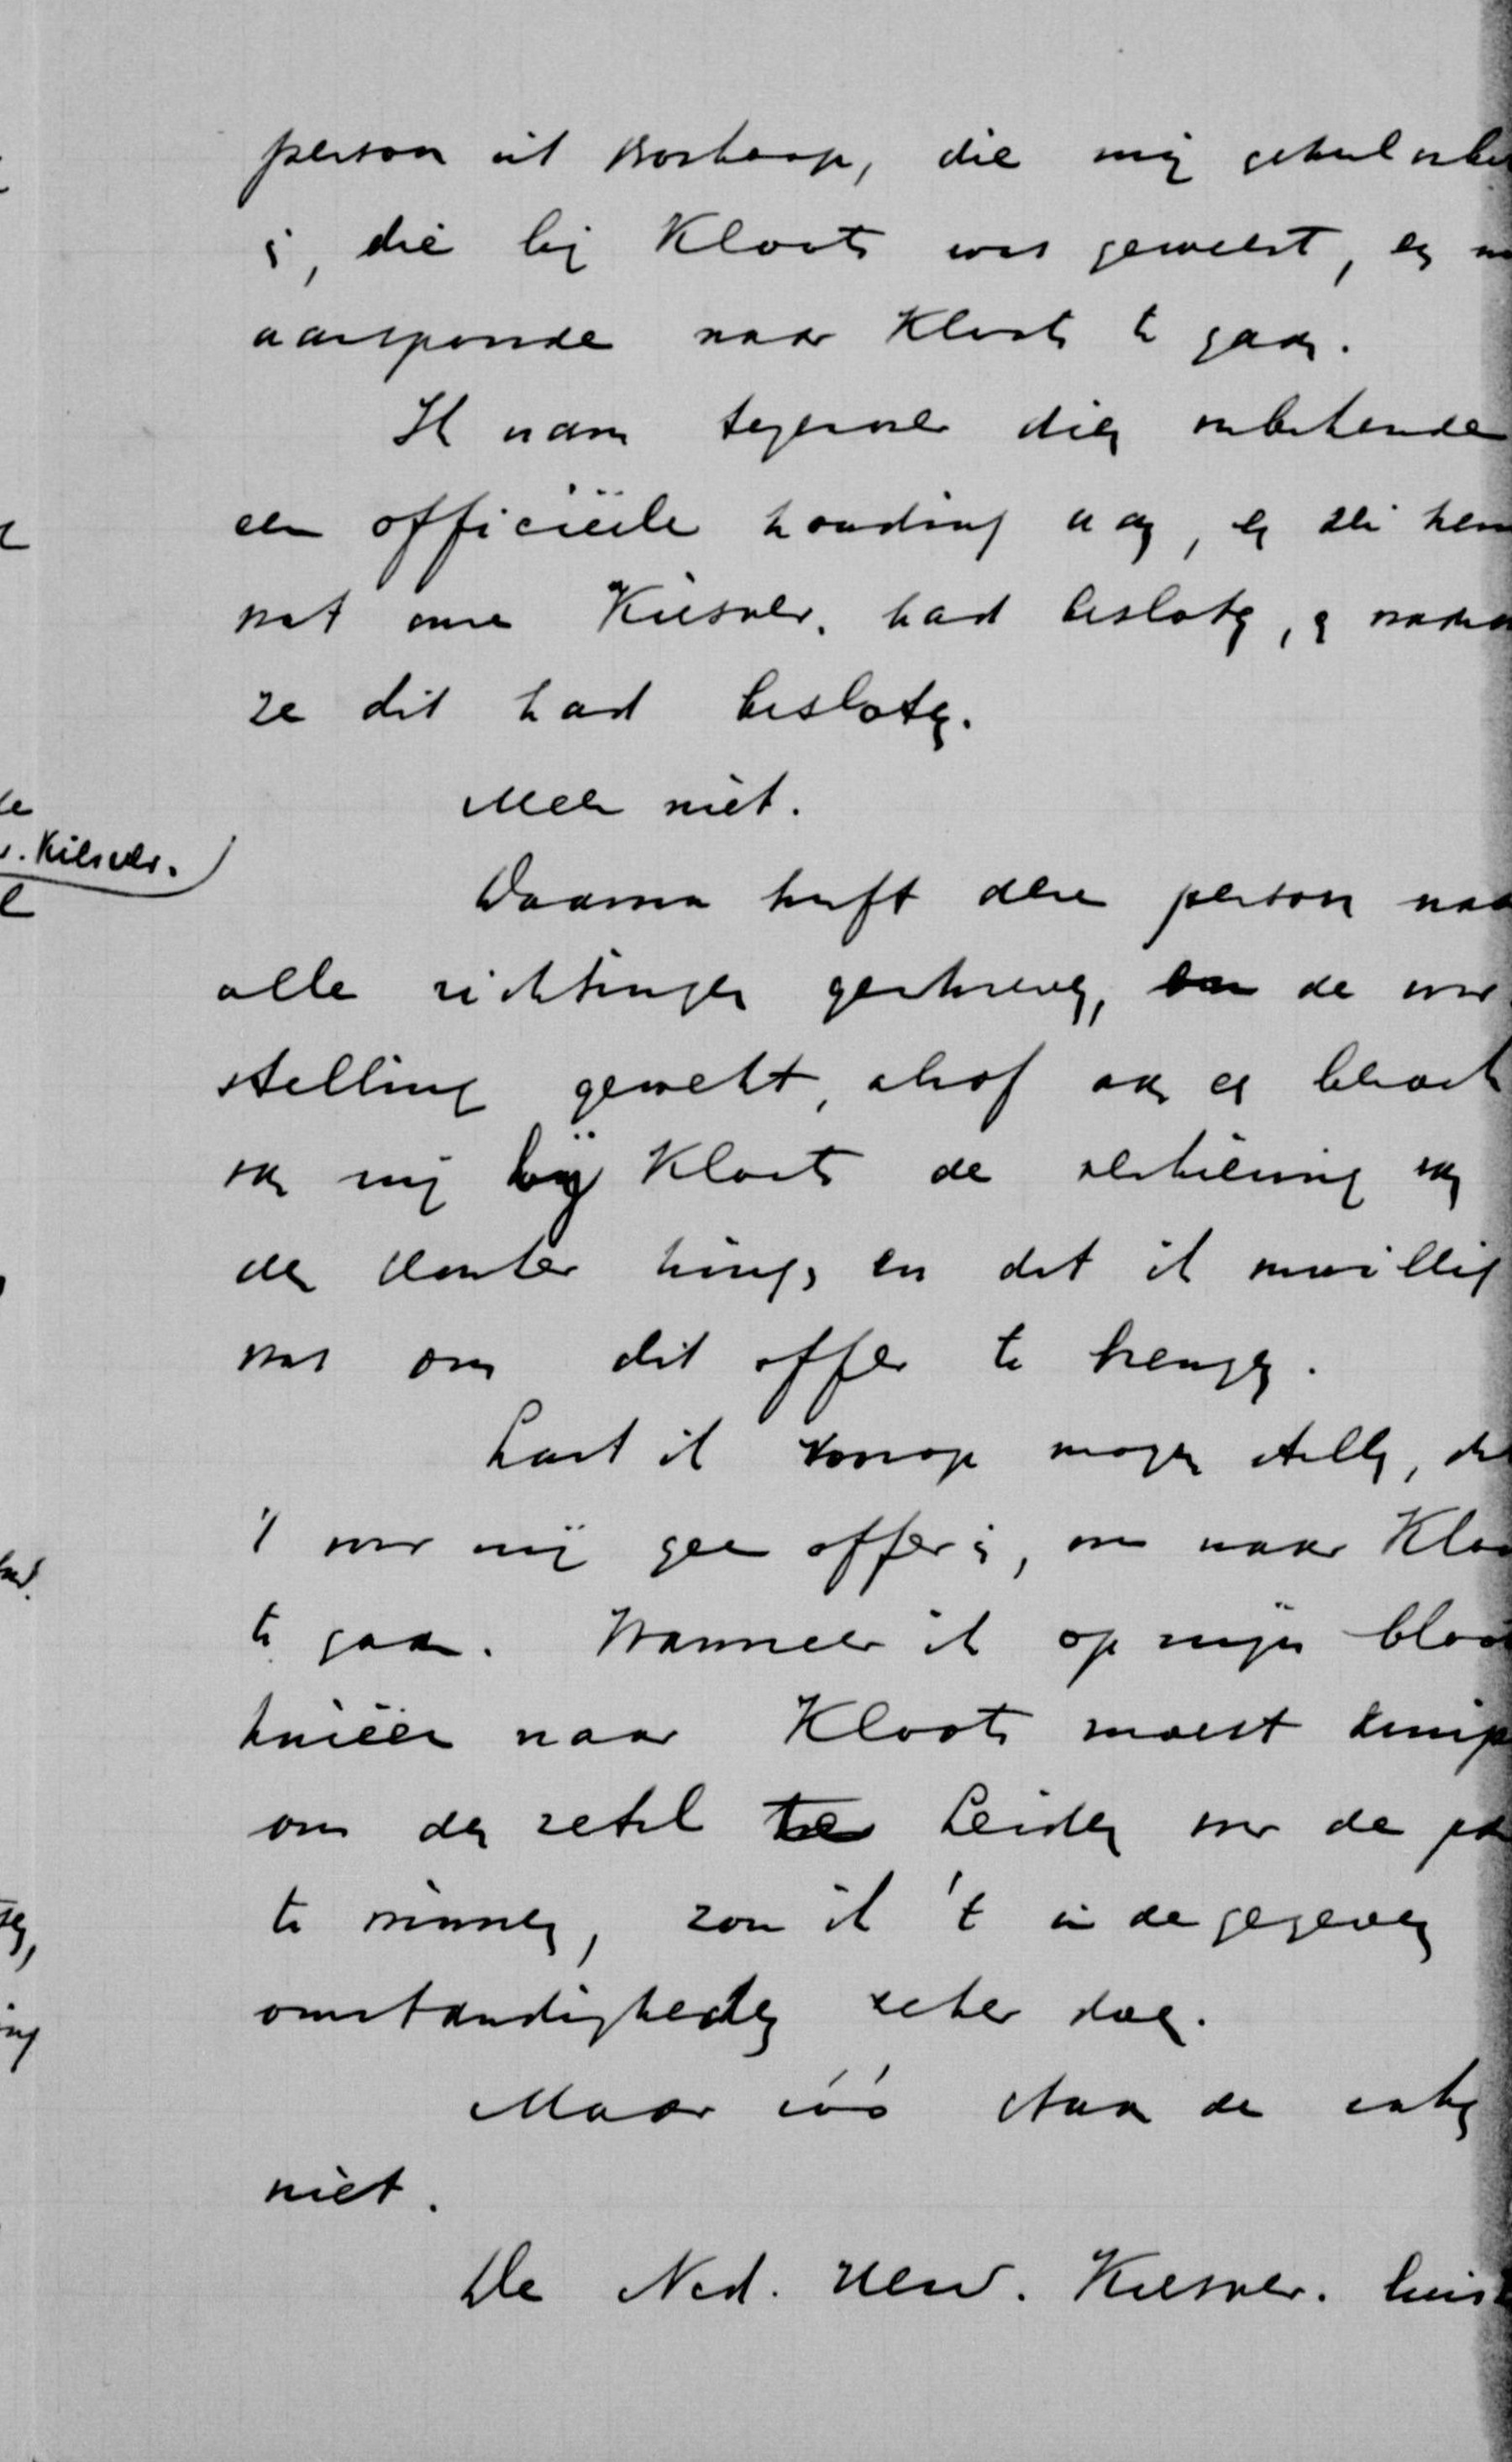 person uit Boskoop, die mij geheel onbe
is, die bij Kloots was geweest, en m
aanspoorde naar Kloots te gaan.
Ik nam tegenover dien onbekende
een officiëele houding aan, en zei hem
wat onze Kiesver. had besloten, en waarom
ze dit had besloten.
Meer niet.
v. Kiesver.
Daarna heeft deze person naar
alle richtingen geschreven, en de voor-
stelling gewekt, alsof aan een bezoek
van mij bij Kloots de verkiezing van
den Dokter hing, en dat ik onwillig
was om dit offer te brengen.
Laat ik voorop mogen stellen, dat
't voor mij geen offer is, om naar Kloo
te gaan. Wanneer ik op mijn bloot
knieën naar Kloots moest kruip
om den zetel te Leiden voor de pa
te winnen, zou ik 't in de gegeven
omstandigheden zeker doen.
Maar zóó staan de zaken
niet.
De Ned. Herv. Kiesver.